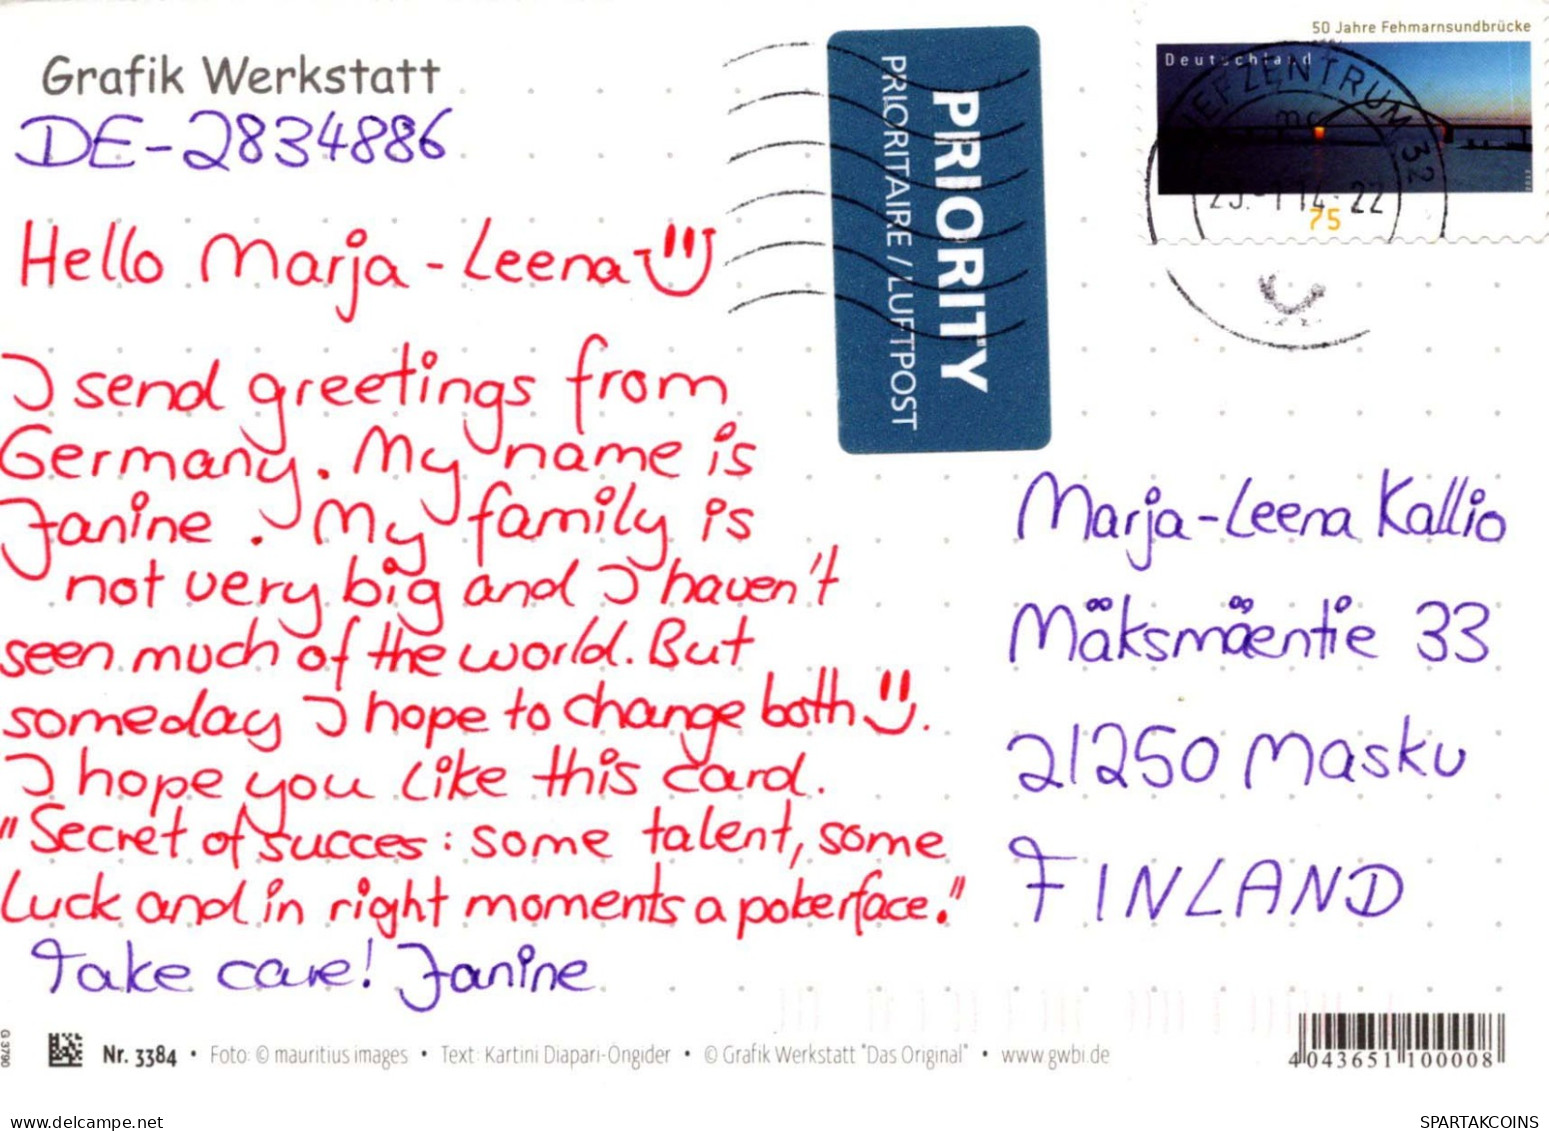 Grafik Werkstatt
DE-2834886
Hello Marja-Leena
I send greetings from
Germany. My name is
Janine. My family is
not very big and I haven't
seen much of the world. But
someday I hope to change both.
I hope you like this card.
"Secret of succes: some talent, some
luck and in right moments a pokerface."
Take care! Janine
PRIORITY
PRIORITAIRE / LUFTPOST
50 Jahre Fehmarnsundbrücke
Deutschland
BRIEFZENTRUM 32
mc
14-22
75
Marja-Leena Kallio
Mäksmäentie 33
21250 Masku
FINLAND
G 3790
Nr. 3384 • Foto: © mauritius images • Text: Kartini Diapari-Öngider • © Grafik Werkstatt "Das Original" • www.gwbi.de
4 043651 100008
www.delcampe.net
SPARTAKCOINS